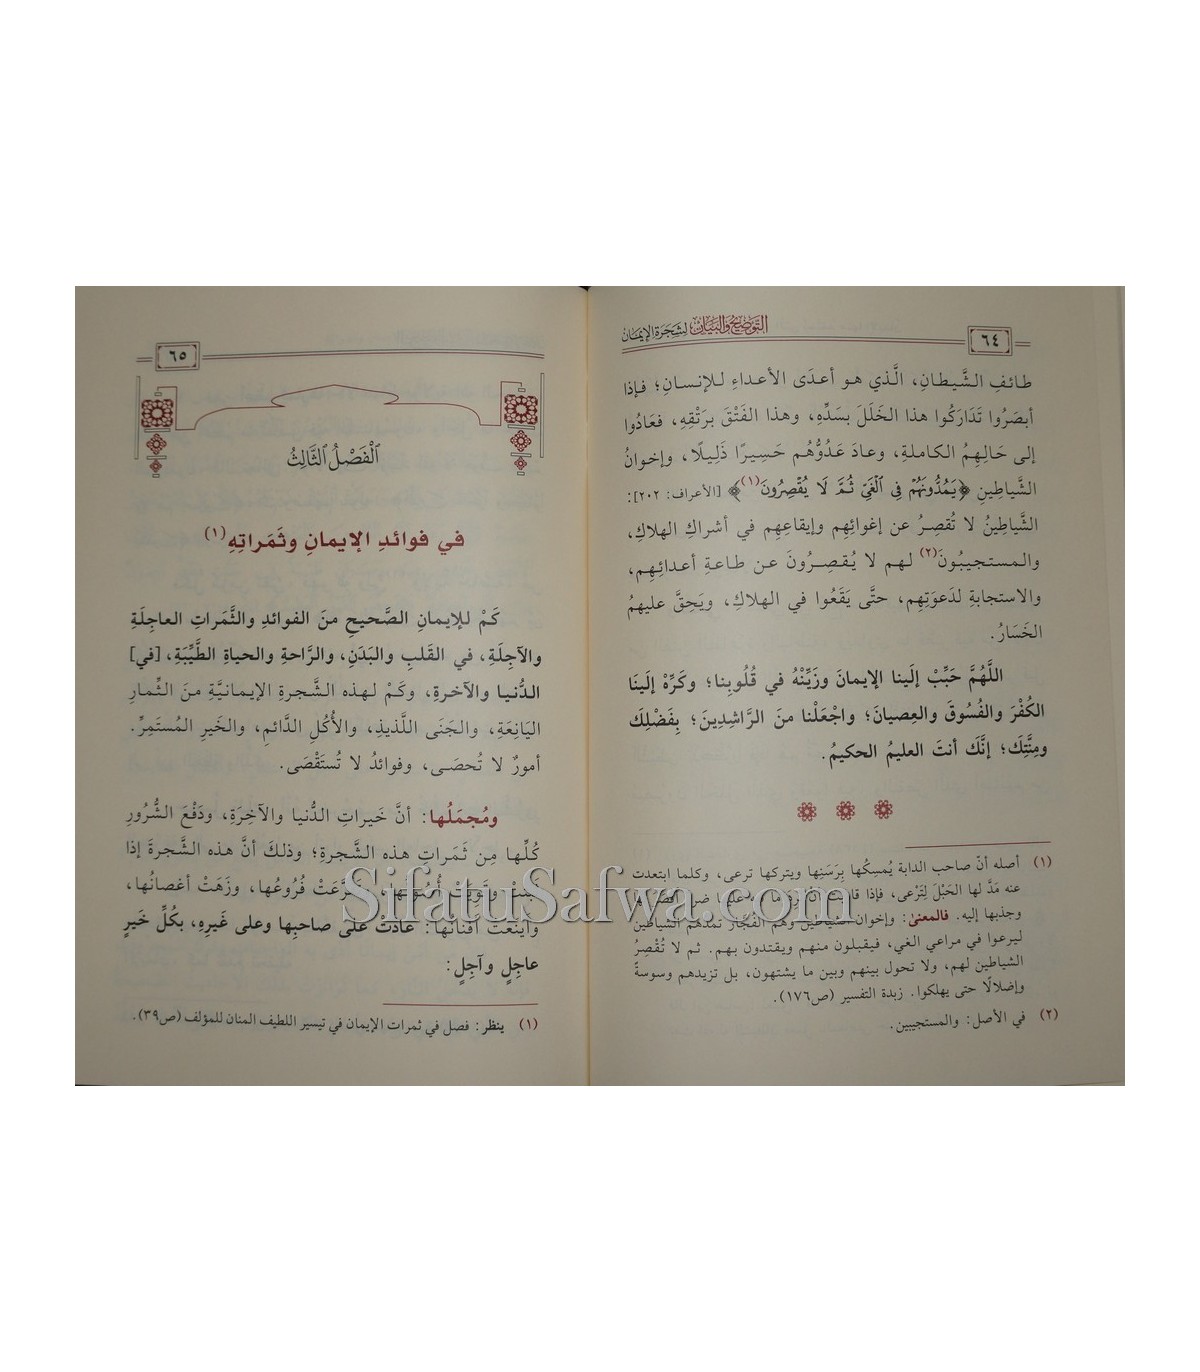 ٦٤
التوضيح والبيان لشجرة الإيمان
طائفِ الشَّيطانِ، الَّذي هو أعدَى الأعداءِ للإنسانِ؛ فإذا
أبصَرُوا تَدَارَكُوا هذا الخَلَلَ بسَدِّهِ، وهذا الفَتْقَ برَتْقِهِ، فعَادُوا
إلى حَالِهِمُ الكاملةِ، وعادَ عَدُوُّهُم حَسِيرًا ذَلِيلًا، وإخوانُ
الشَّياطينِ ﴿يَمُدُّونَهُمْ فِي ٱلْغَيِّ ثُمَّ لَا يُقْصِرُونَ(١)﴾ [الأعراف: ٢٠٢]:
الشَّياطينُ لا تُقصِرُ عن إغوائِهِم وإيقاعِهِم في أشراكِ الهلاكِ،
والمستجيبُونَ(٢) لهم لا يُقصِرُونَ عن طاعةِ أعدائِهِم،
والاستجابةِ لدَعوَتِهِم، حتَّى يَقَعُوا في الهلاكِ، ويَحِقَّ عليهمُ
الخَسَارُ.
اللَّهُمَّ حَبِّبْ إلَينا الإيمانَ وزَيِّنْهُ في قُلُوبِنا؛ وكَرِّهْ إلَينَا
الكُفْرَ والفُسُوقَ والعِصيانَ؛ واجْعَلْنا منَ الرَّاشِدِينَ؛ بِفَضْلِكَ
ومِنَّتِكَ؛ إنَّكَ أنتَ العليمُ الحكيمُ.
(١) أصله أنّ صاحب الدابة يُمسِكها بِرَسَنِها ويتركها ترعى، وكلما ابتعدت
عنه مَدَّ لها الحَبْلَ لِتَرْعى، فإذا قاربت أنْ
وجذبها إليه. فالمعنى: وإخوان الشياطين وهم الفُجَّار تمدّهم الشياطين
ليرعوا في مراعي الغي، فيقبلون منهم ويقتدون بهم. ثم لا تُقْصِرُ
الشياطين لهم، ولا تحول بينهم وبين ما يشتهون، بل تزيدهم وسوسةً
وإضلالًا حتى يهلكوا. زبدة التفسير (ص١٧٦).
(٢) في الأصل: والمستجيبين.
٦٥
ٱلْفَصْلُ ٱلثَّالِثُ
في فوائدِ الإيمانِ وثَمَراتِهِ(١)
كَمْ للإيمانِ الصَّحيحِ منَ الفوائدِ والثَّمَراتِ العاجِلَةِ
والآجِلَةِ، في القَلبِ والبَدَنِ، والرَّاحةِ والحياةِ الطَّيِّبَةِ، [في]
الدُّنيا والآخرةِ، وكَمْ لهذه الشَّجرةِ الإيمانيَّةِ منَ الثِّمارِ
اليَانِعَةِ، والجَنَى اللَّذيذِ، والأُكُلِ الدَّائمِ، والخَيرِ المُستَمِرِّ.
أمورٌ لا تُحصَى، وفوائدُ لا تُستَقْصَى.
ومُجمَلُها: أنَّ خَيراتِ الدُّنيا والآخِرَةِ، ودَفْعَ الشُّرُورِ
كُلِّها مِن ثَمَراتِ هذه الشَّجرةِ؛ وذلكَ أنَّ هذه الشَّجرةَ إذا
ثَبَتَتْ وقَوِيَتْ أُصُولُها، وتَفَرَّعَتْ فُرُوعُها، وزَهَتْ أغصانُها،
وأينَعتْ أفنانُها: عادَتْ على صاحبِها وعلى غَيرِهِ، بكُلِّ خَيرٍ
عاجِلٍ وآجِلٍ:
(١) ينظر: فصل في ثمرات الإيمان في تيسير اللطيف المنان للمؤلف (ص٣٩).
SifatuSafwa.com